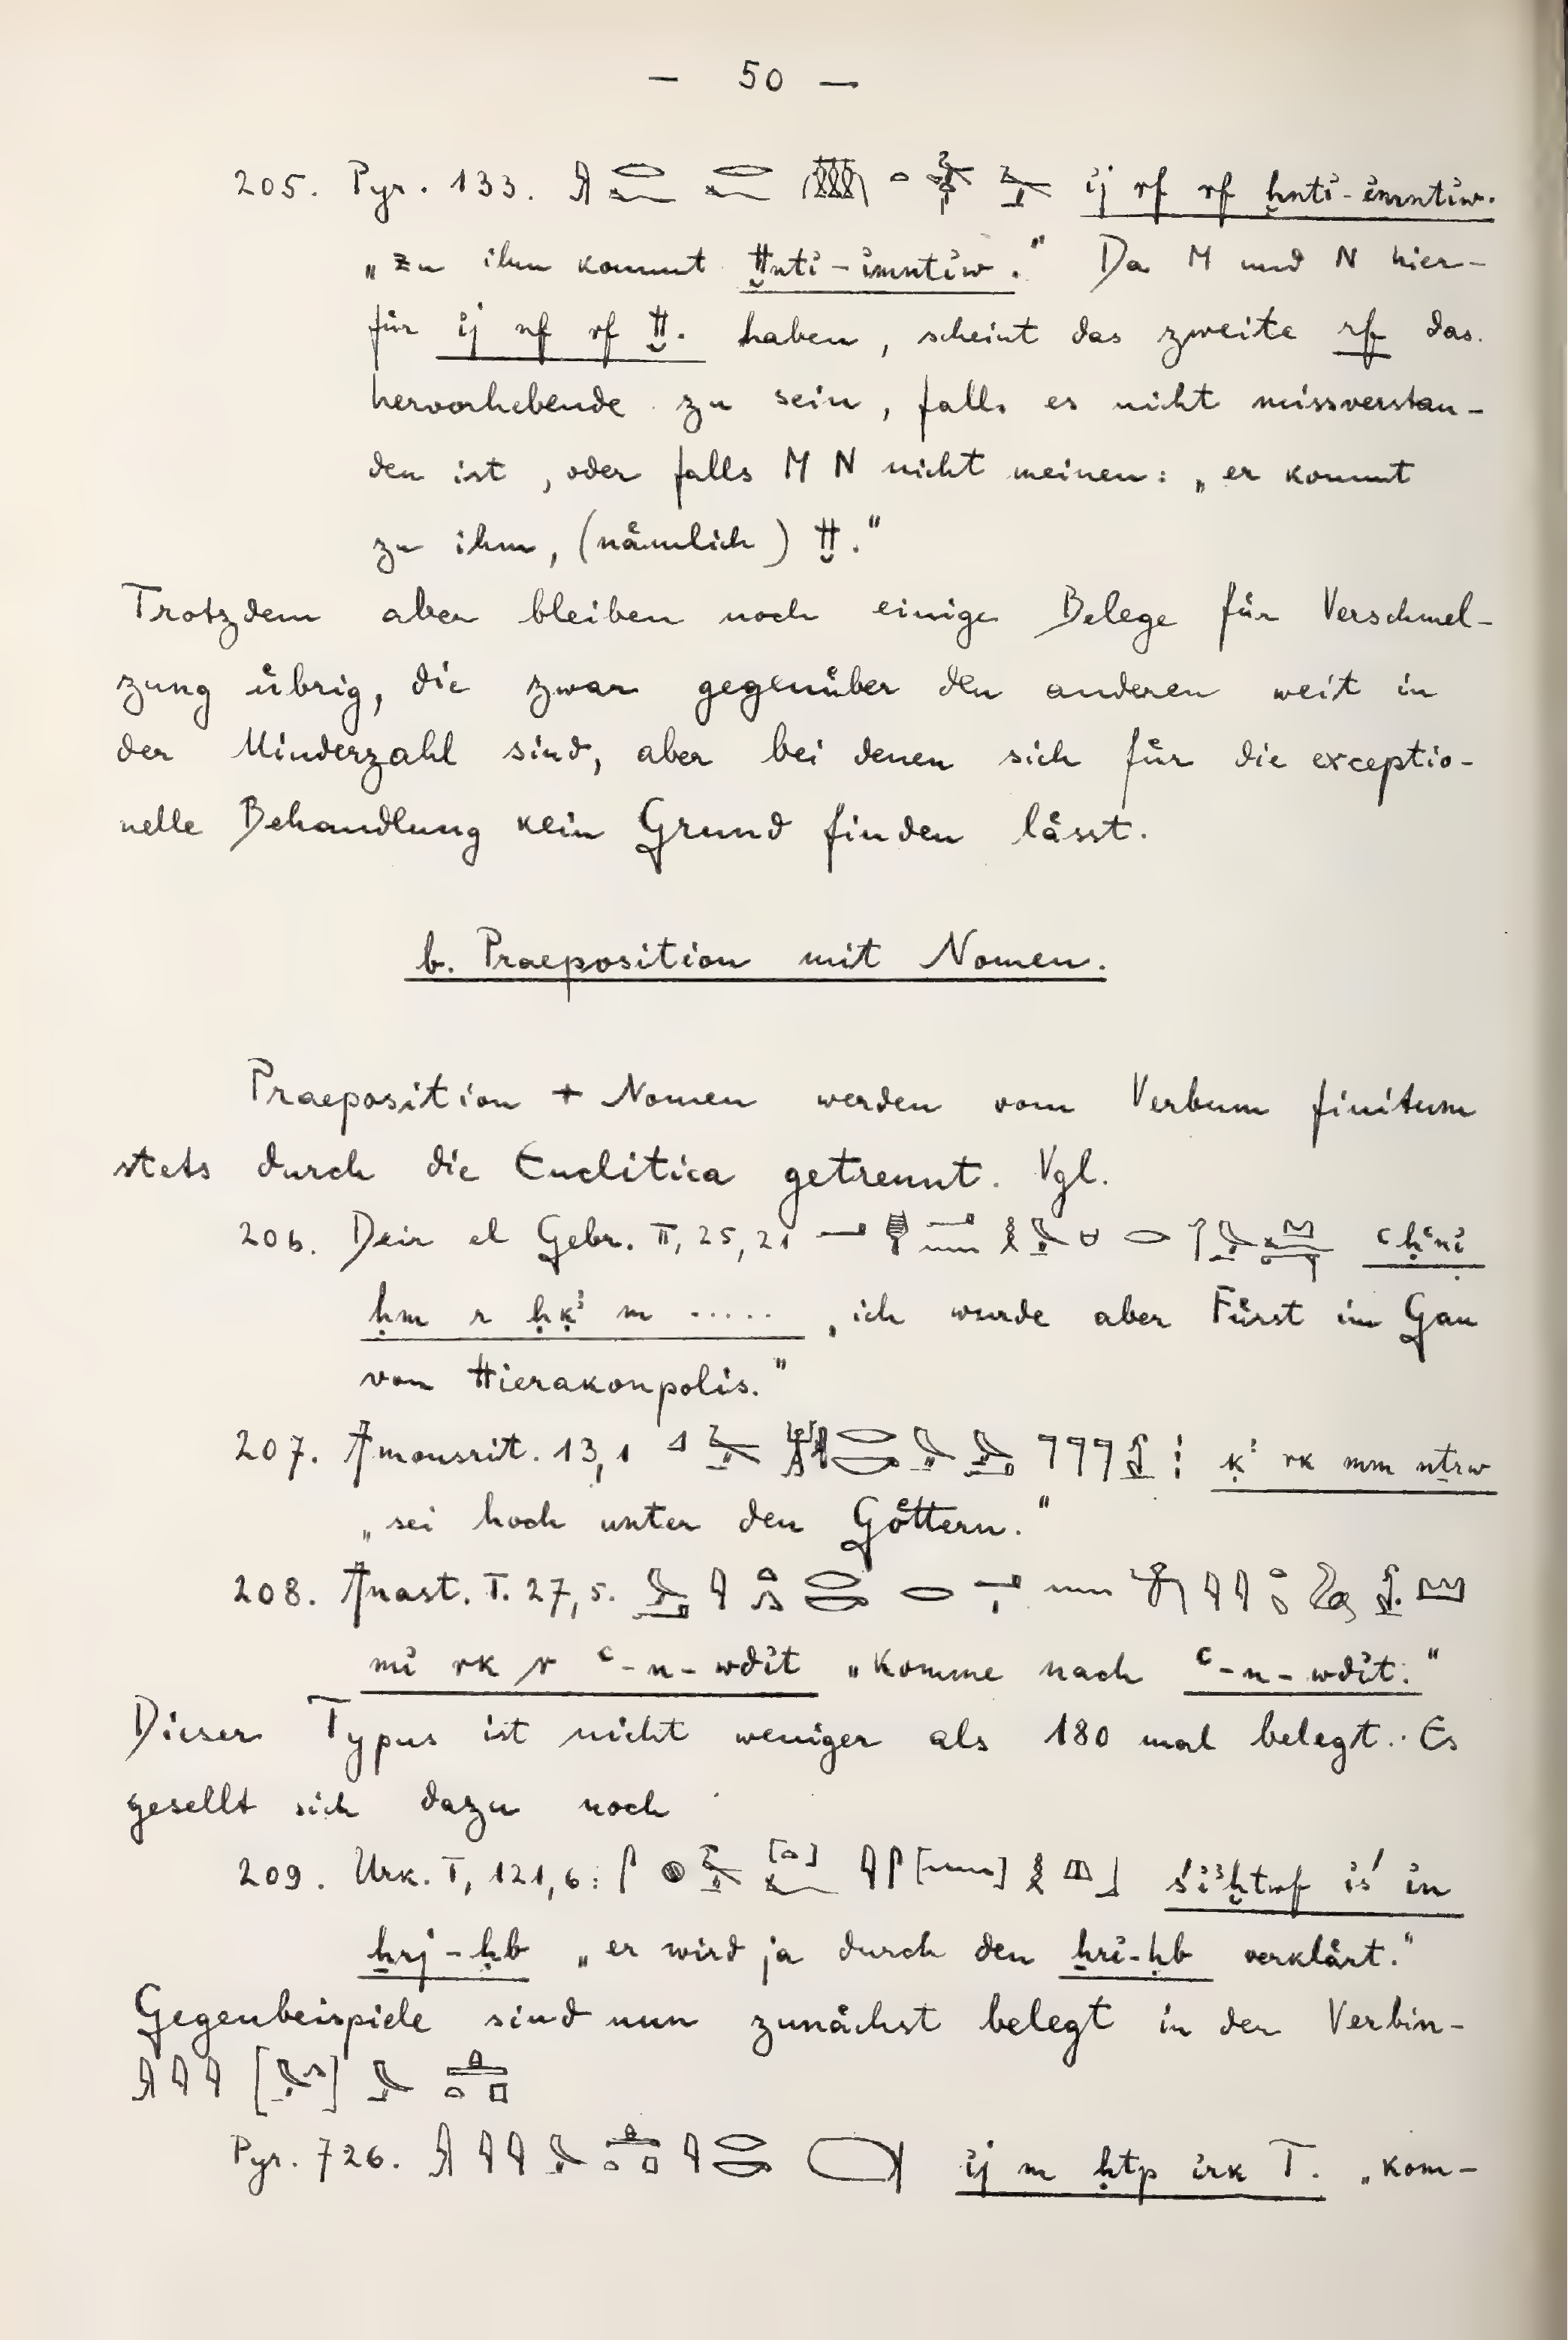 — 50 —
205. Pyr. 133. ij rf rf ḫnti-imntiw.
„zu ihm kommt Ḫnti-imntiw.“ Da M und N hier-
für ij nf rf Ḫ. haben, scheint das zweite rf das
hervorhebende zu sein, falls es nicht missverstan-
den ist, oder falls M N nicht meinen: „er kommt
zu ihm, (nämlich) Ḫ.“
Trotzdem aber bleiben noch einige Belege für Verschmel-
zung übrig, die zwar gegenüber den anderen weit in
der Minderzahl sind, aber bei denen sich für die exceptio-
nelle Behandlung kein Grund finden lässt.
b. Praeposition mit Nomen.
Praeposition + Nomen werden vom Verbum finitum
stets durch die Enclitica getrennt. Vgl.
206. Deir el Gebr. II, 25, 21 ꜥḥꜥni
ḥm r ḥḳꜣ m ..... „ich wurde aber Fürst im Gau
von Hierakonpolis.“
207. Amonsrit. 13,1 ḳꜣ rk mm nṯrw
„sei hoch unter den Göttern.“
208. Anast. I. 27,5.
mi rk r ꜥ-n-wdit „komme nach ꜥ-n-wdit.“
Dieser Typus ist nicht weniger als 180 mal belegt. Es
gesellt sich dazu noch
209. Urk. I, 121,6: śiꜣḫtwf iś in
ẖrj-ḥb „er wird ja durch den ẖri-ḥb verklärt.“
Gegenbeispiele sind nun zunächst belegt in der Verbin-
Pyr. 726. ij m ḥtp irk T. „kom-